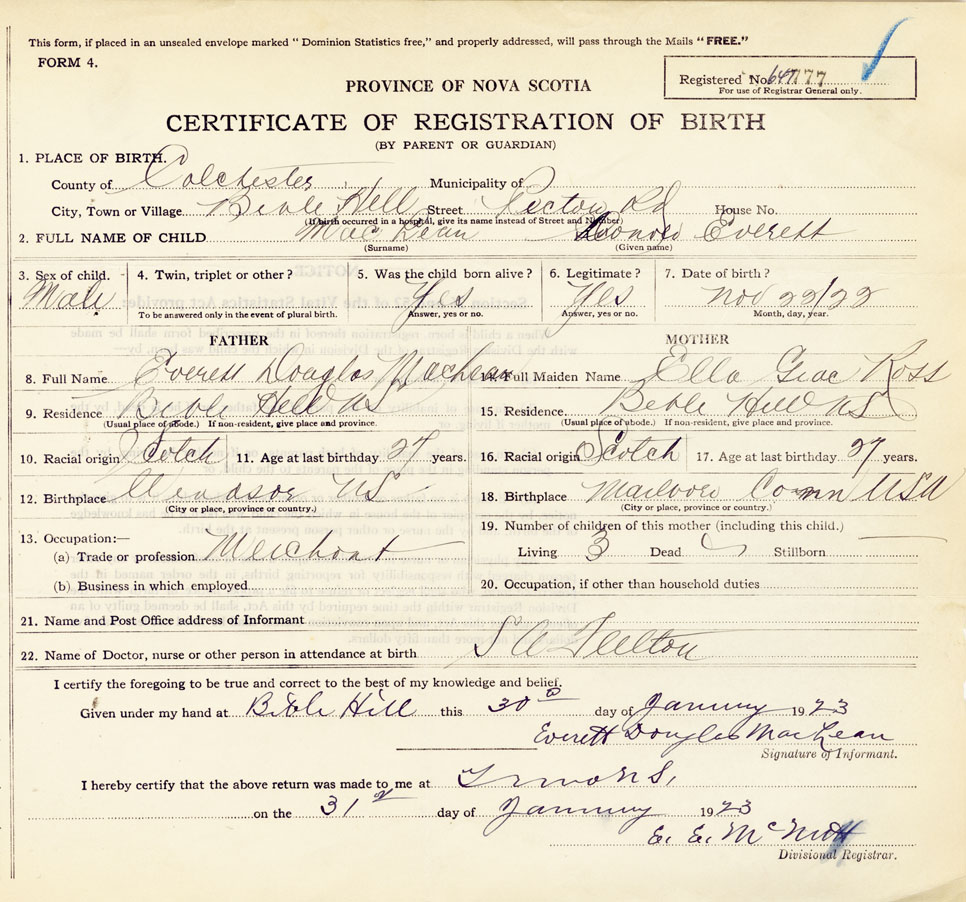 This form, if placed in an unsealed envelope marked " Dominion Statistics free," and properly addressed, will pass through the Mails "FREE."
FORM 4.
Registered No. 777
For use of Registrar General only.
PROVINCE OF NOVA SCOTIA
CERTIFICATE OF REGISTRATION OF BIRTH
(BY PARENT OR GUARDIAN)
1. PLACE OF BIRTH.
County of Colchester Municipality of
City, Town or Village Bible Hill Street Pictou Rd House No.
(If birth occurred in a hospital, give its name instead of Street and Number)
2. FULL NAME OF CHILD MacLean Everett
(Surname) (Given name)
3. Sex of child. 4. Twin, triplet or other? 5. Was the child born alive? 6. Legitimate? 7. Date of birth?
Male Yes Yes Nov 22/22
To be answered only in the event of plural birth. Answer, yes or no. Answer, yes or no. Month, day, year.
FATHER MOTHER
8. Full Name Everett Douglas MacLean 14. Full Maiden Name Ella Grac Ross
9. Residence Bible Hill NS 15. Residence. Bible Hill NS
(Usual place of abode.) If non-resident, give place and province. (Usual place of abode.) If non-resident, give place and province.
10. Racial origin Scotch 11. Age at last birthday 27 years. 16. Racial origin Scotch 17. Age at last birthday 27 years.
12. Birthplace Windsor NS 18. Birthplace Conn USA
(City or place, province or country.) (City or place, province or country.)
13. Occupation:— 19. Number of children of this mother (including this child.)
(a) Trade or profession Merchant Living 3 Dead Stillborn
(b) Business in which employed 20. Occupation, if other than household duties
21. Name and Post Office address of Informant
22. Name of Doctor, nurse or other person in attendance at birth S A
I certify the foregoing to be true and correct to the best of my knowledge and belief.
Given under my hand at Bible Hill this 30 day of January 1923
Everett Douglas MacLean
Signature of Informant.
I hereby certify that the above return was made to me at Truro NS,
on the 31 day of January 1923
E. E. McNutt
Divisional Registrar.